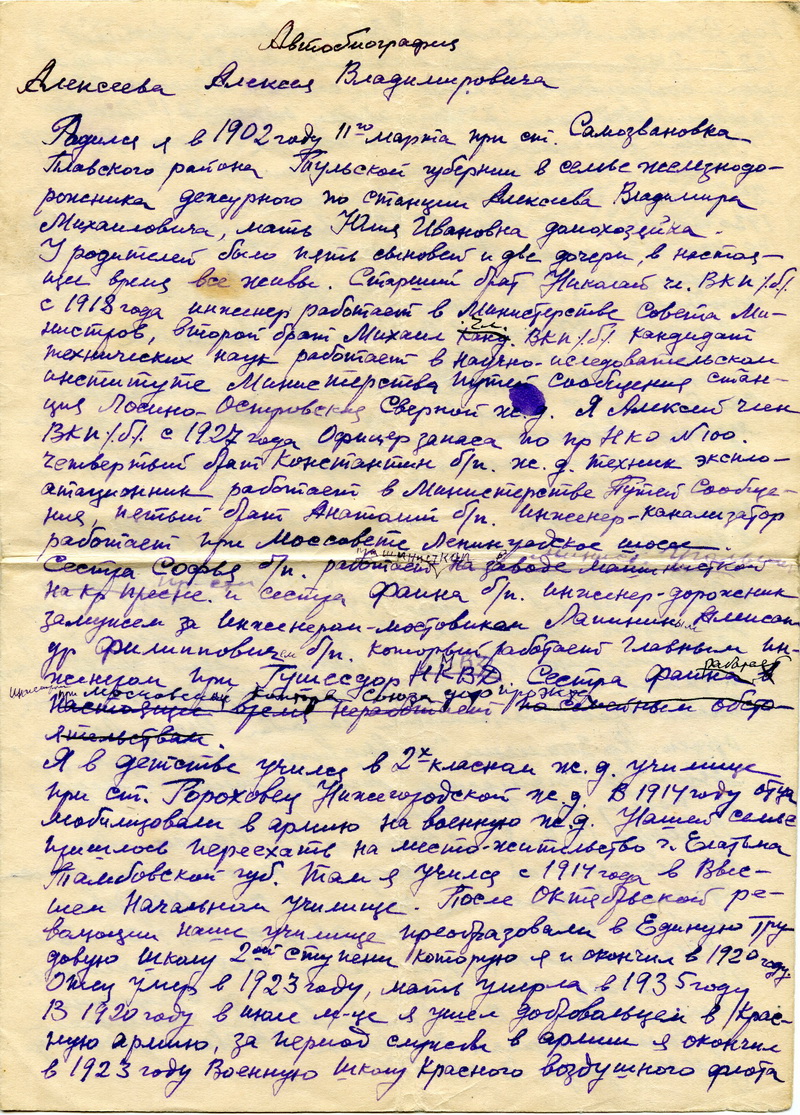 Автобиография
Алексеева Алексея Владимировича
Родился я в 1902 году 11го марта при ст. Самозвановка
Плавского района Тульской губернии в семье железнодо-
рожника дежурного по станции Алексеева Владимира
Михайловича, мать Юлия Ивановна домохозяйка.
У родителей было пять сыновей и две дочери, в настоя-
щее время все живы. Старший брат Николай чл. ВКП/б/
с 1918 года инженер работает в Министерстве Совета Ми-
нистров, второй брат Михаил чл. ВКП/б/ кандидат
технических наук работает в научно-иследовательском
институте Министерства путей сообщения стан-
ция Лосино-Островская Сверной ж.д. Я Алексей член
ВКП/б/ с 1927 года Офицер запаса по пр НКО N100.
Четвертый брат Константин б/п. ж.д. техник эксплo-
атационник работает в Министерстве Путей Сообще-
ния, пятый брат Анатолий б/п. инженер-канализатор
работает при Моссовете Ленинградское шоссе.
машинисткой
Сестра Софья б/п. работает на заводе машинисткой
на кр Пресне. и сестра Фаина б/п. инженер-дорожник
замужем за инженером-мостовиком Лапиным Алексан-
др Филипповичем б/п. который работает главным ин-
женером при Гушосдор НКВД. Сестра Фаина в
работает
при московской конторе Союза
настоящее время неработает по семейным обсто-
ятельствам.
Я в детстве учился в 2х класном ж.д. училище
при ст. Гороховец Нижегородской ж.д. В 1914 году отца
мобилизовали в армию на военную ж.д. Нашей семье
пришлось переехать на место-жительство г. Елатьма
Тамбовской губ. Там я учился с 1914 года в Выс-
шем Начальном училище. После Октябрьской ре-
волюции наше училище преобразовали в Единую Тру-
довую школу 2ой ступени которую я и окончил в 1920 году.
Отец умер в 1923 году, мать умерла в 1935 году
В 1920 году в июле м-це я ушел добровольцем в Крас-
ную армию, за период службы в армии я окончил
в 1923 году Военную школу Красного воздушного флота